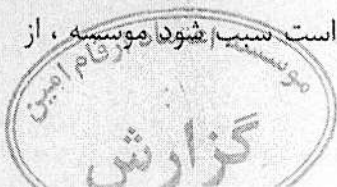 است سبب شود موسسه ، از
موسسه اعتماد ارقام امین
گزارش